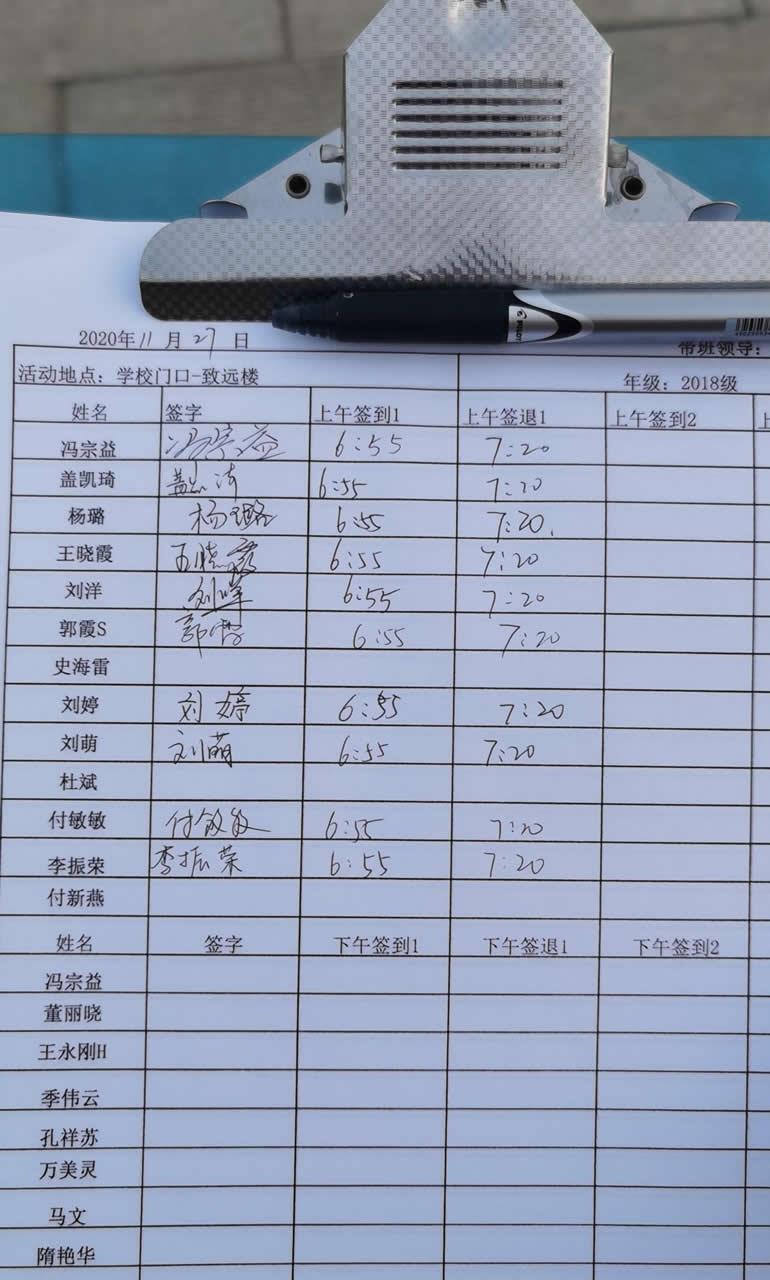 PILOT
2020年11月27日
带班领导:
活动地点: 学校门口-致远楼 年级: 2018级
姓名 签字 上午签到1 上午签退1 上午签到2
冯宗益 冯宗益 6:55 7:20
盖凯琦 6:55 7:20
杨璐 杨璐 6:55 7:20.
王晓霞 王晓霞 6:55 7:20
刘洋 刘洋 6:55 7:20
郭霞S 6:55 7:20
史海雷
刘婷 刘婷 6:55 7:20
刘萌 刘萌 6:55 7:20
杜斌
付敏敏 付敏敏 6:55 7:20
李振荣 李振荣 6:55 7:20
付新燕
姓名 签字 下午签到1 下午签退1 下午签到2
冯宗益
董丽晓
王永刚H
季伟云
孔祥苏
万美灵
马文
隋艳华